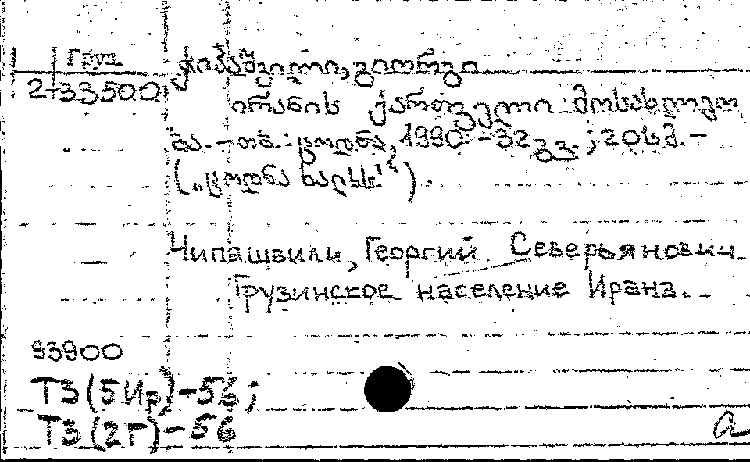 Груз
ჭიპაშვილი, გიორგი
2-33500
ირანის ქართველი მოსახლეო
ბა. – თბ.: ცოდნა, 1990. – 32 გვ.; 20 სმ. –
(„ცოდნა ხალხს“).
Чипашвили, Георгий Северьянович.
Грузинское население Ирана.
93900
Т3(5Ир)-56;
Т3(2Г)-56
а